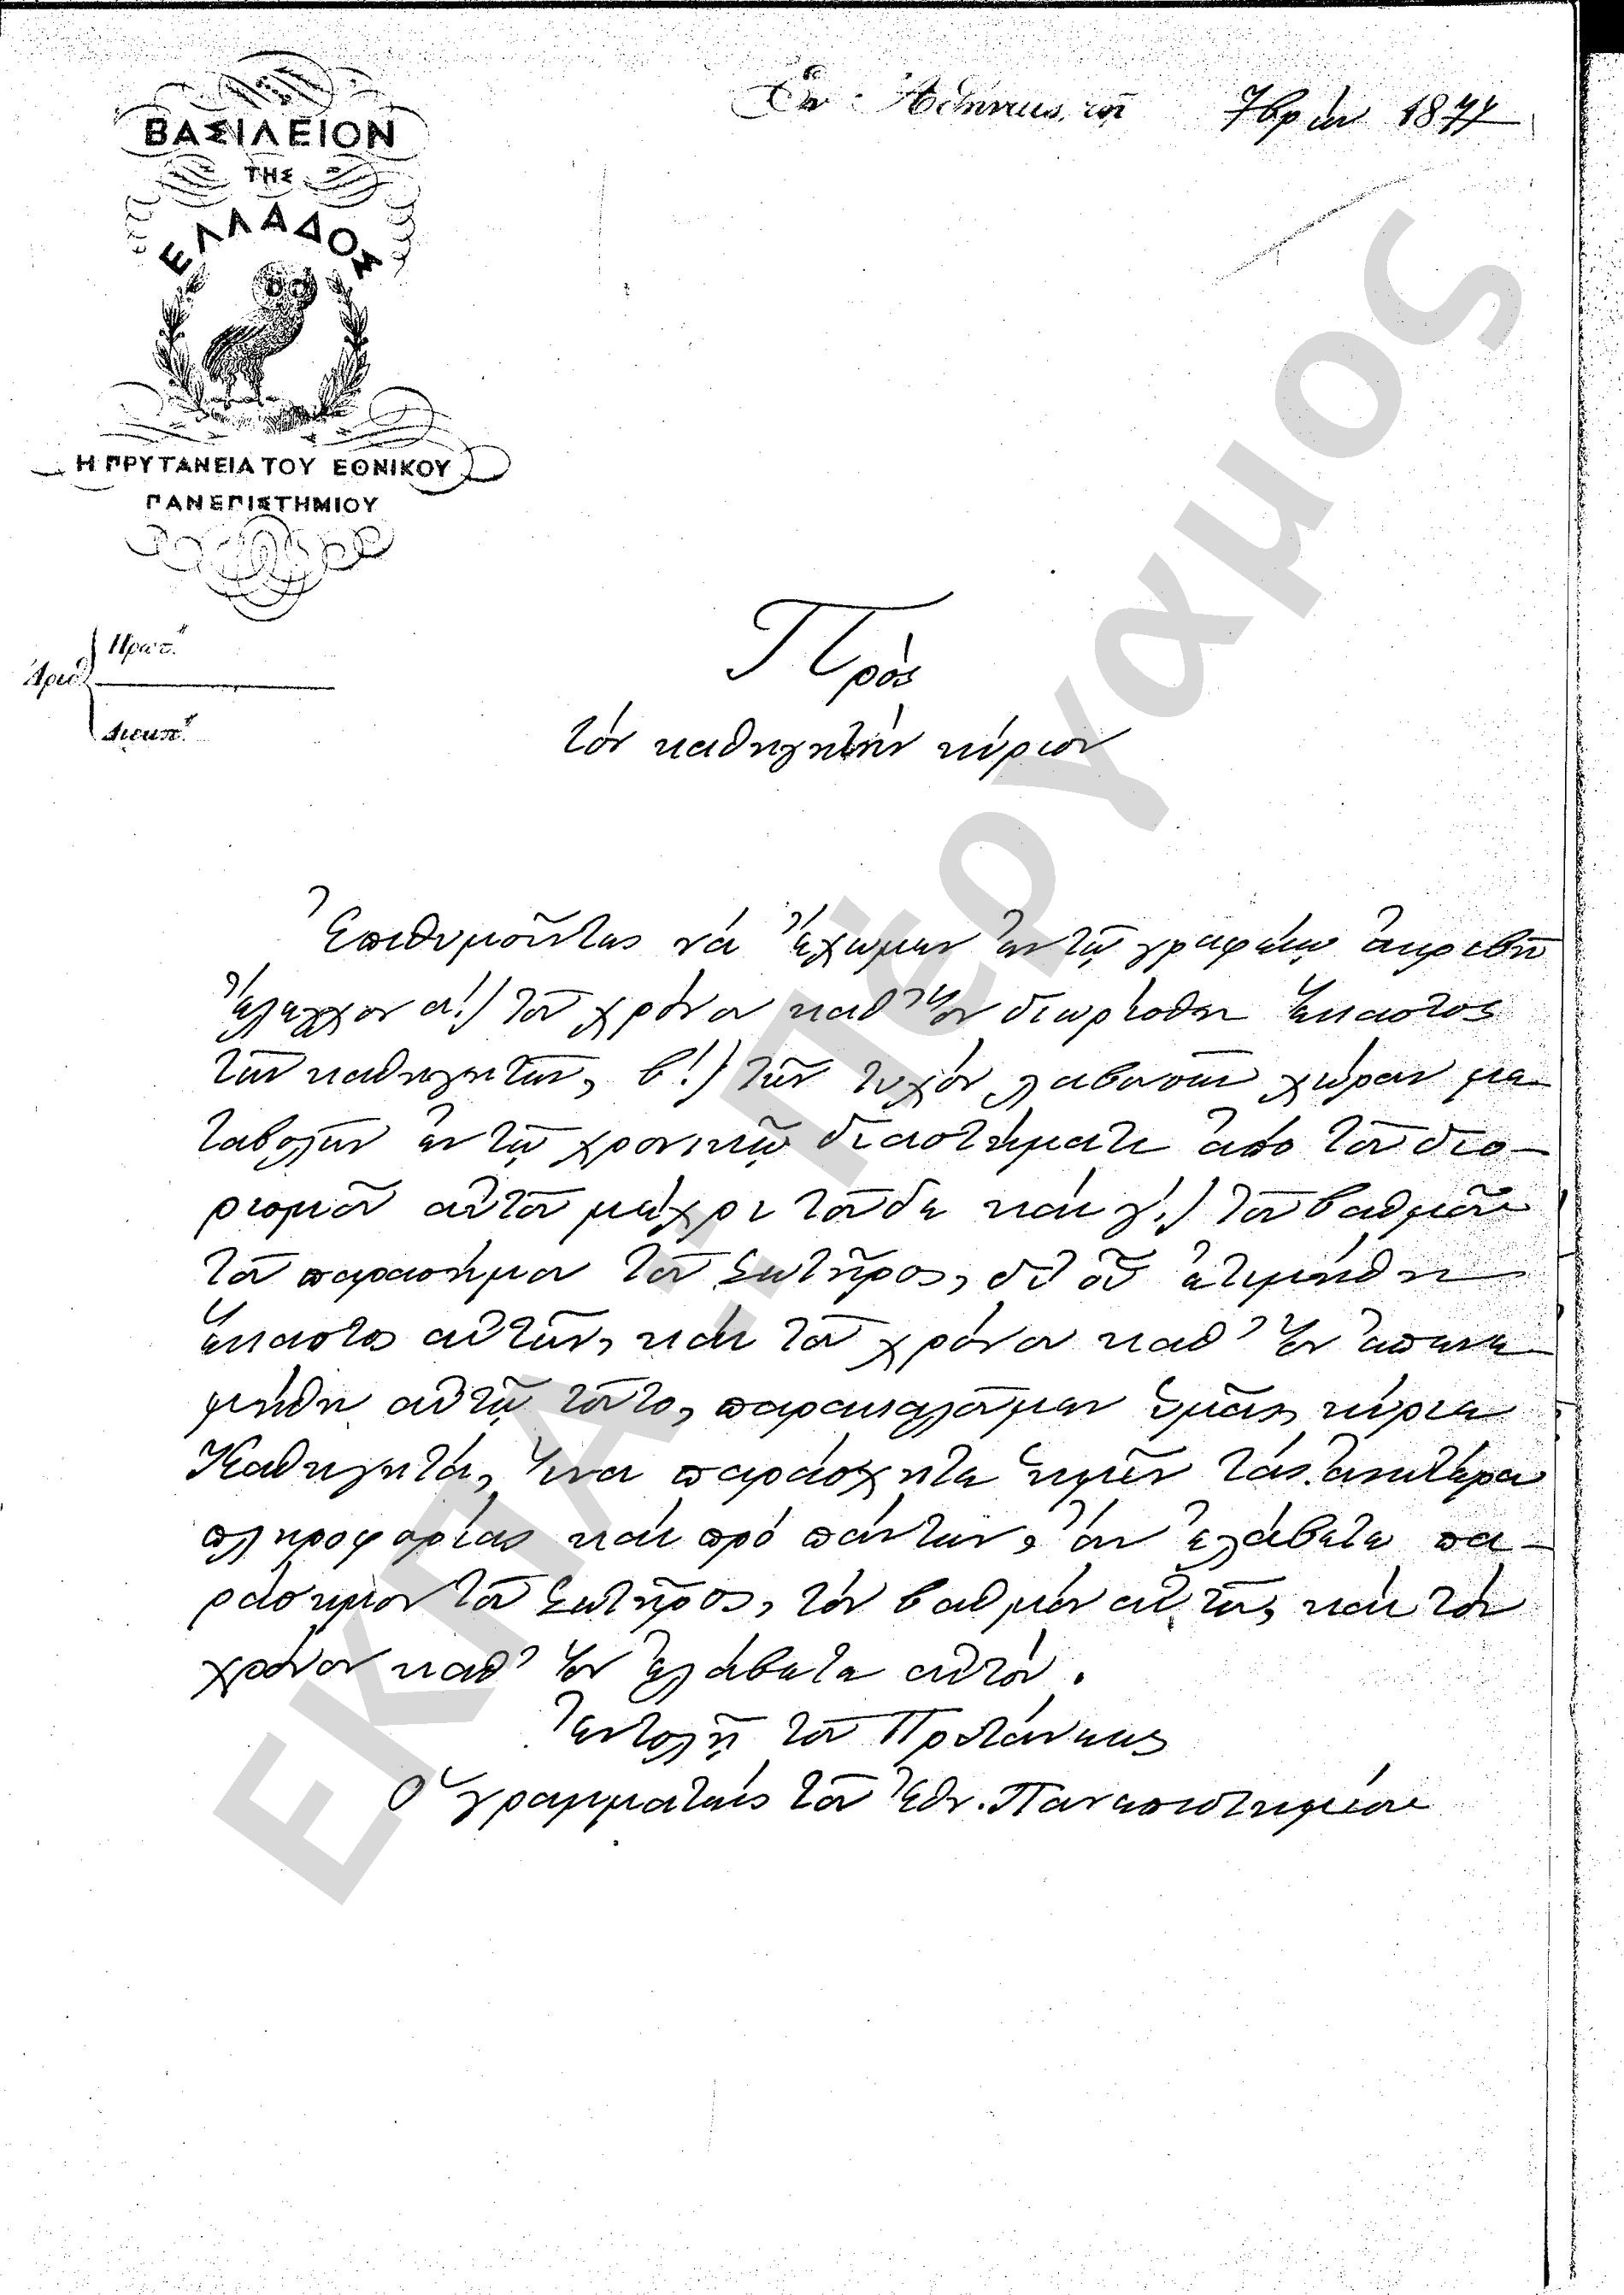 ΒΑΣΙΛΕΙΟΝ
ΤΗΣ
ΕΛΛΑΔΟΣ
Η ΠΡΥΤΑΝΕΙΑ ΤΟΥ ΕΘΝΙΚΟΥ
ΠΑΝΕΠΙΣΤΗΜΙΟΥ
Ἐν Ἀθήναις, τῇ 7βρίου 1877
Ἀριθ. Πρωτ.
Διεκπ.
Πρὸς
τὸν καθηγητὴν κύριον
Ἐπιθυμοῦντες νὰ ἔχωμεν ἐν τῷ γραφείῳ ἀκριβῆ
ἔλεγχον α΄.) τοῦ χρόνου καθ' ὃν διωρίσθη ἕκαστος
τῶν καθηγητῶν, β΄.) τῶν τυχὸν λαβουσῶν χώραν με-
ταβολῶν ἐν τῷ χρονικῷ διαστήματι ἀπὸ τοῦ διο-
ρισμοῦ αὐτοῦ μέχρι τοῦδε καὶ γ΄.) τοῦ βαθμοῦ
τοῦ παρασήμου τοῦ Σωτῆρος, δι' οὗ ἐτιμήθη
ἕκαστος αὐτῶν, καὶ τοῦ χρόνου καθ' ὃν ἀπενε-
μήθη αὐτῷ τοῦτο, παρακαλοῦμεν ὑμᾶς, κύριε
Καθηγητά, ἵνα παράσχητε ἡμῖν τὰς ἀνωτέρω
πληροφορίας καὶ πρὸ πάντων, ἂν ἐλάβετε πα-
ράσημον τοῦ Σωτῆρος, τὸν βαθμὸν αὐτοῦ, καὶ τὸν
χρόνον καθ' ὃν ἐλάβετε αὐτόν.
Ἐντολῇ τοῦ Πρυτάνεως
Ὁ γραμματεὺς τοῦ Ἐθν. Πανεπιστημίου
ΕΚΠΑ: Πέργαμος